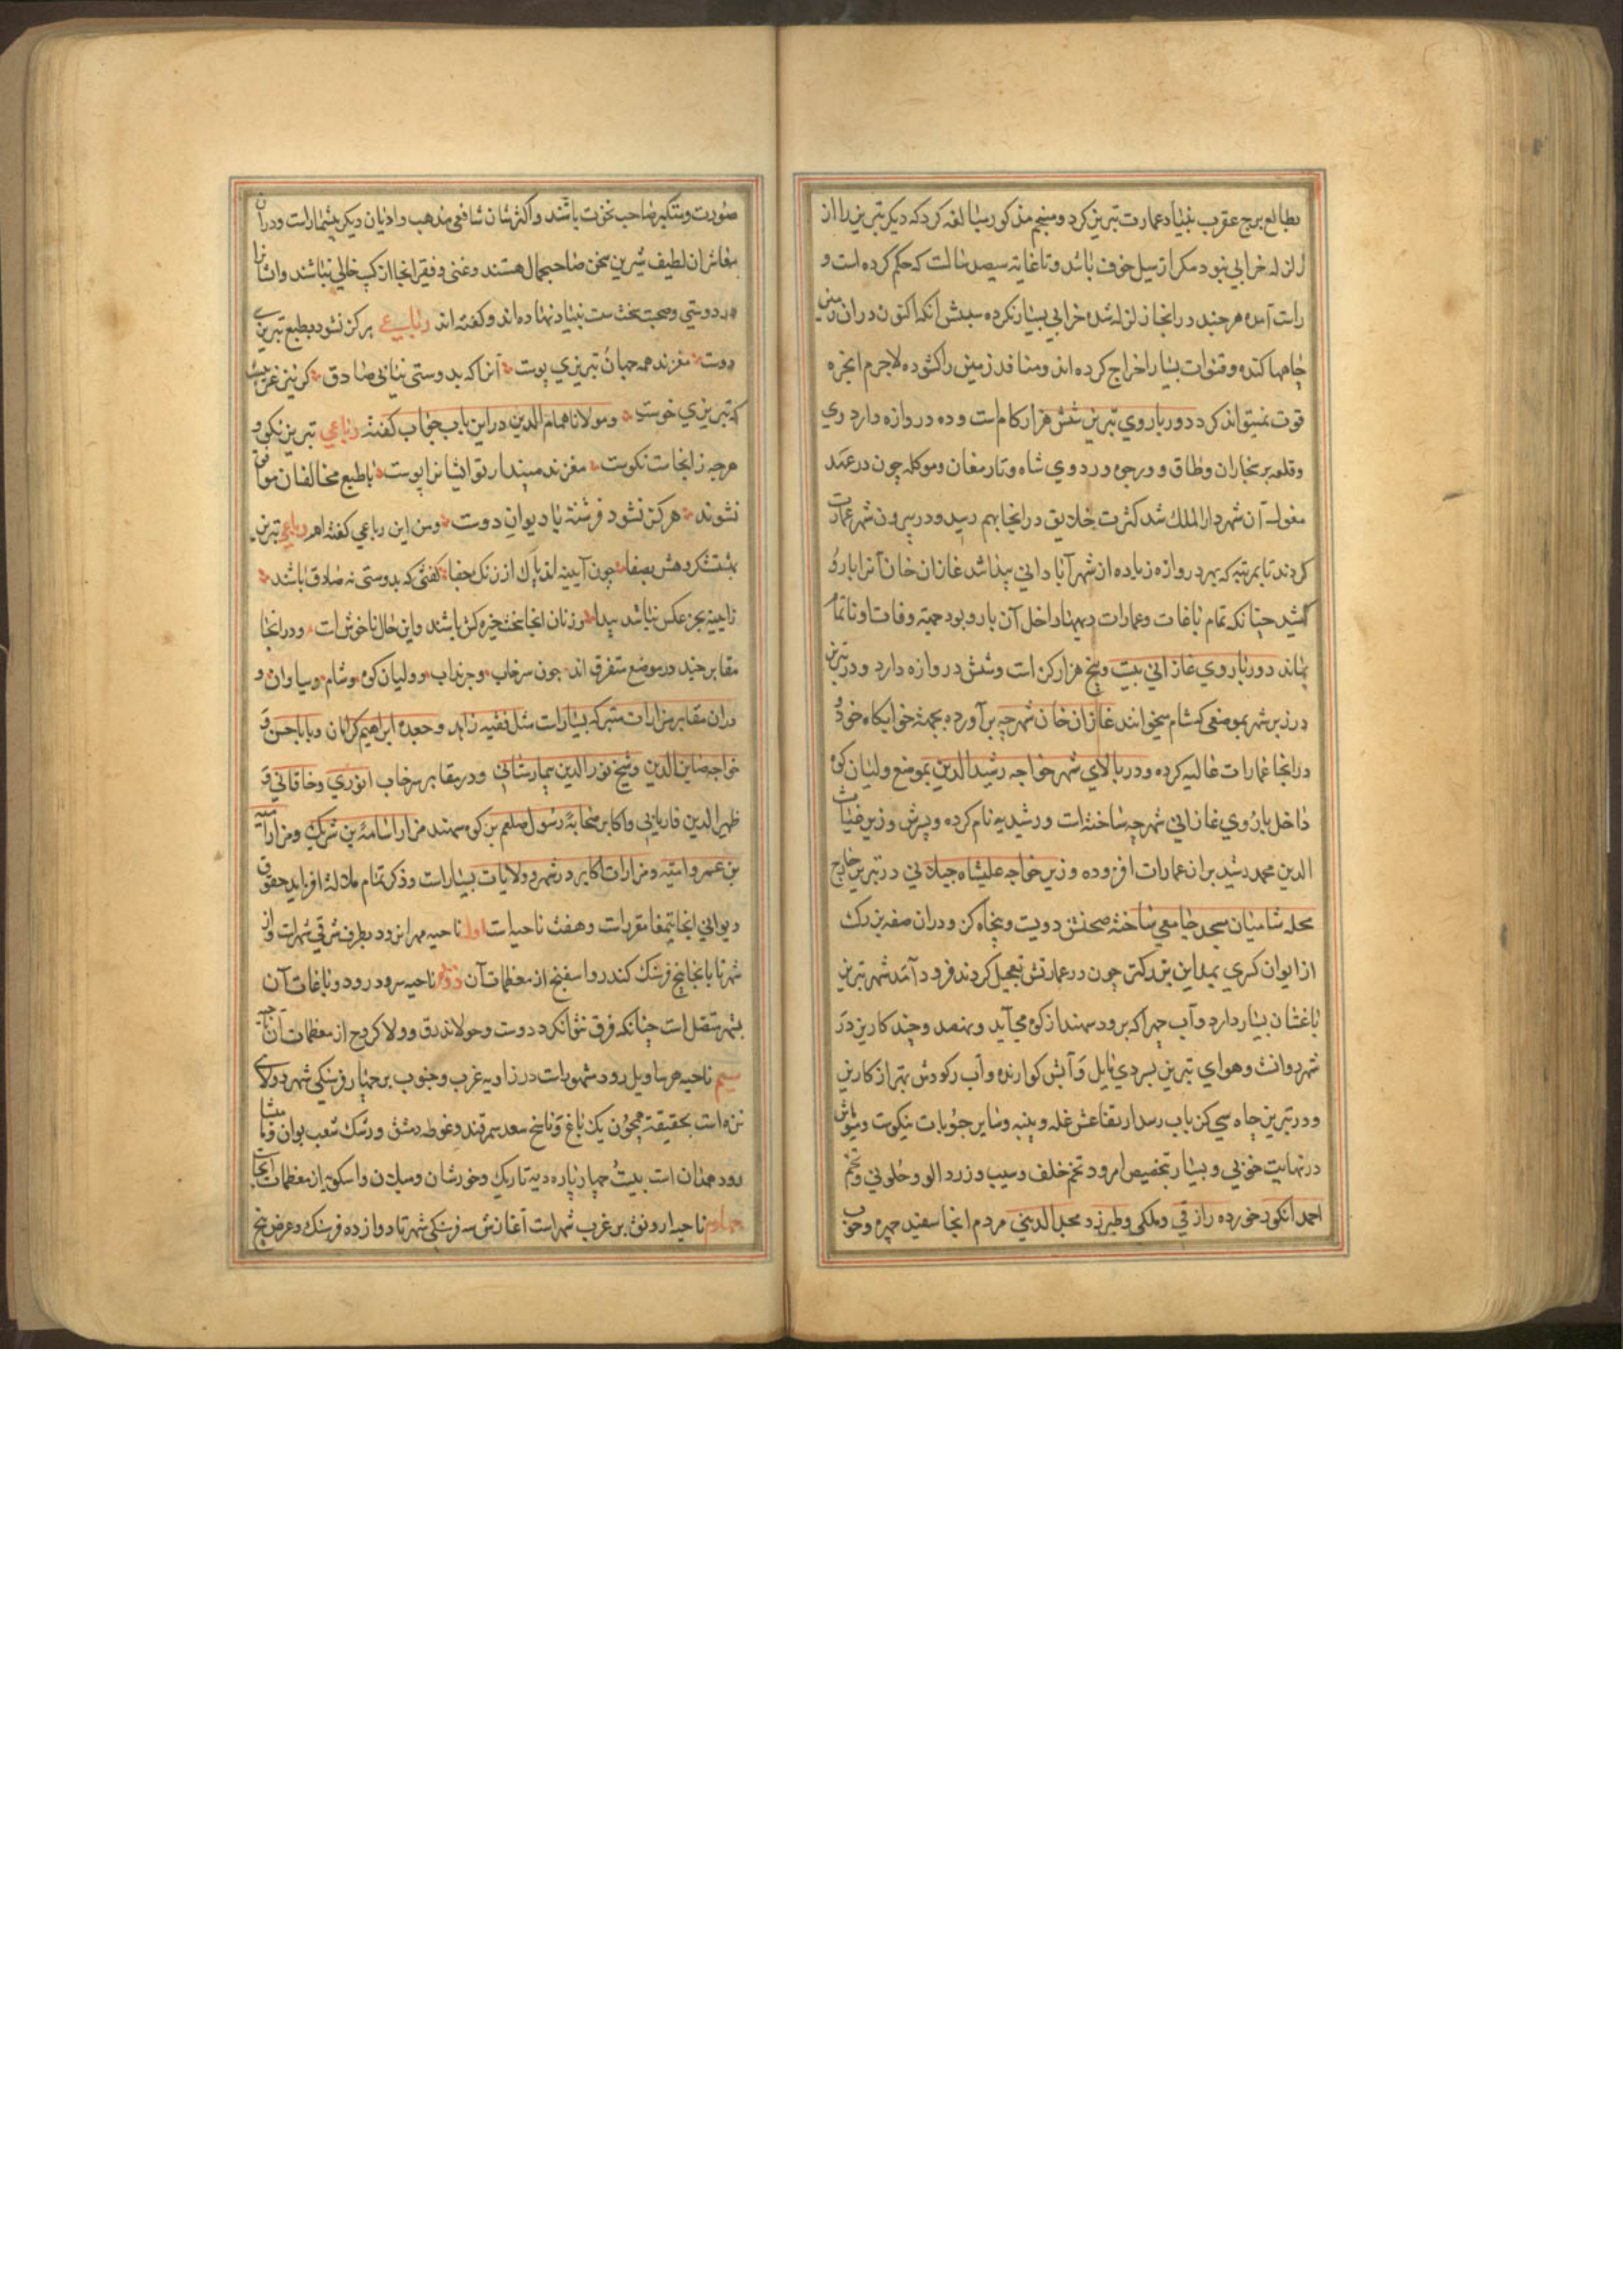 بطالع برج عقرب بنیاد عمارت تبریز کرد و منجم مذکور مبالغه کرد که دیکر تبریز را از
زلزله خرابی نبود مکر از سیل خوف باشد و تا غایة سیصد سالست که حکم کرده است و
راست آمده هرچند در انجا زلزله شده خرابی بسیار نکرده سببش انکه اکنون دران زمین
چاهها کنده و قنوات بسیار اخراج کرده اند و منافذ زمین راکشوده لاجرم ابخره
قوت نمیتواند کرد دور باروی تبریز شش هزار کام است و ده دروازه دارد ری
و قلعه و سنجاران و طاق و ورجو و دردوی شاه و نارمغان و موکله چون در عهد
مغول آن شهر دارالملک شد کثرت خلایق در انجا بهم رسید و در بیرون شهر عمارت
کردند تا بمرتبه که بهر دروازه زیاده از شهر آبادانی پیدا شد غازان خان آنرا بارو
کشید چنانکه تمام باغات و عمارات دیهها داخل آن بارو بود جهة وفات او ناتمام
بماند دور باروی غازانی بیست و پنج هزار کز است و شش دروازه دارد و در تبریز
در زیر شهر بموضعی که شام میخوانند غازان خان شهرچه برآورده بجهة خوابکاه خود
در انجا عمارات عالیه کرده و در بالای شهر خواجه رشید الدین بموضع ولیان کوه
داخل باروی غازانی شهرچه ساخته است و رشیدیه نام کرده و پسرش وزیر غیاث
الدین محمد رشید بران عمارات افزوده و زیر خواجه علیشاه جیلانی در تبریز خارج
محله شامیان مسجد جامعی ساخته صحنش دویست و پنجاه کز و دران صفه بزرک
از ایوان کسری بمداین بزرکتر چون در عمارتش تعجیل کردند فرود آمد شهر تبریز
باغستان بسیار دارد و آب مهران که برود سهند از کوه می آید و نهصد و چند کاریز در
شهر روانست و هوای تبریز بسردی مایل و آبش کوارنده و آب رودش بهتر از کاریز
و در تبریز چاه سی کز باب رسد ارتفاعش غله و پنبه و سایر حبوبات نیکوست و میوهاش
در نهایت خوبی و بسیار بتخصیص امرود تخم خلف و سیب و زردالو و حلوانی و تخم
احمد انکور خورده رازقی و ملکی و طبرزد و مجدالدینی مردم انجا سفید چهره و خوب
صورت و متکبر صاحب نخوت باشند و اکثرشان شافعی مذهب و ادیان دیکر بیشمار است و دران
معاشران لطیف شیرین سخن صاحبجمال هستند و غنی و فقیر انجا از کسب خالی نباشند و ایشانرا
در دوستی و صحبت سخت سست بنیاد نهاده اند و کفته اند رباعی هرکز نشود بطبع تبریزی
دوست مغزند همه جهان تبریزی پوست آنرا که بدوستی نیابی صادق کر نیز غریبست
که تبریزی خوست و مولانا همام الدین دراین باب جواب کفته رباعی تبریز نکو و
هرچه زانجاست نکوست مغزند مپندار تو ایشانرا پوست باطبع مخالفان موافق
نشوند هرکز نشود فرشته با دیوان دوست و من این رباعی کفته ام رباعی تبریز
بهشتست کروهش بصفا چون آیینه اند پاک از زنک جفا کفتی که بدوستی نه صادق باشند
زایینه بجز عکس نباشد پیدا و زنان انجا سخت خیره کش باشند و این حال ناخوش است و در انجا
مقابر چند در موضع متفرق اند چون سرخاب و چرنداب و ولیان کوه و شام و سیاوان و
دران مقابر مزارات متبرکه بسیار است مثل فقیه زاهد و جعده ابراهیم کرانان و باباحسن و
خواجه صاین الدین و شیخ نورالدین بیمارستانی و در مقابر سرخاب انوری و خاقانی و
ظهیرالدین فاریابی و اکابر صحابهٔ رسول صلعم بر کوه سهند مزار اسامة بن شریک و مزار امیه
بن عمرو امیه و مزارات اکابر در شهر و ولایات بسیار است و ذکر تمام ملالت افزاید حقوق
دیوانی انجا بتمغا مقررست و هفت ناحیه است اول ناحیه مهرانرود بطرف شرقی شهرست واز
شهر تا بانجا پنج فرسنک کندرود اسفنج از معظمات آن دوم ناحیه سرودرود و باغات آن
بشهر متصل است چنانکه فرق نتوان کرد دوست و حولاندرق و ولاکروج از معظمات آن ناحیه
سیم ناحیه هرساویل رود مشهورست در زاویه غرب و جنوب بر چهار فرسنکی شهر و ولایتی
نزه است بحقیقة همچون یک باغ و ناسخ سعد سمرقند و غوطه دمشق و رشک شعب بوان و ماشا
رود همدان است بیست چهار پاره دیه تاریک و خورشان و میلان و اسکویه از معظمات انجا
چهارم ناحیه ارونق بر غرب شهر است آغازش سه فرسنکی شهر تا دوازده فرسنک و عرض پنج